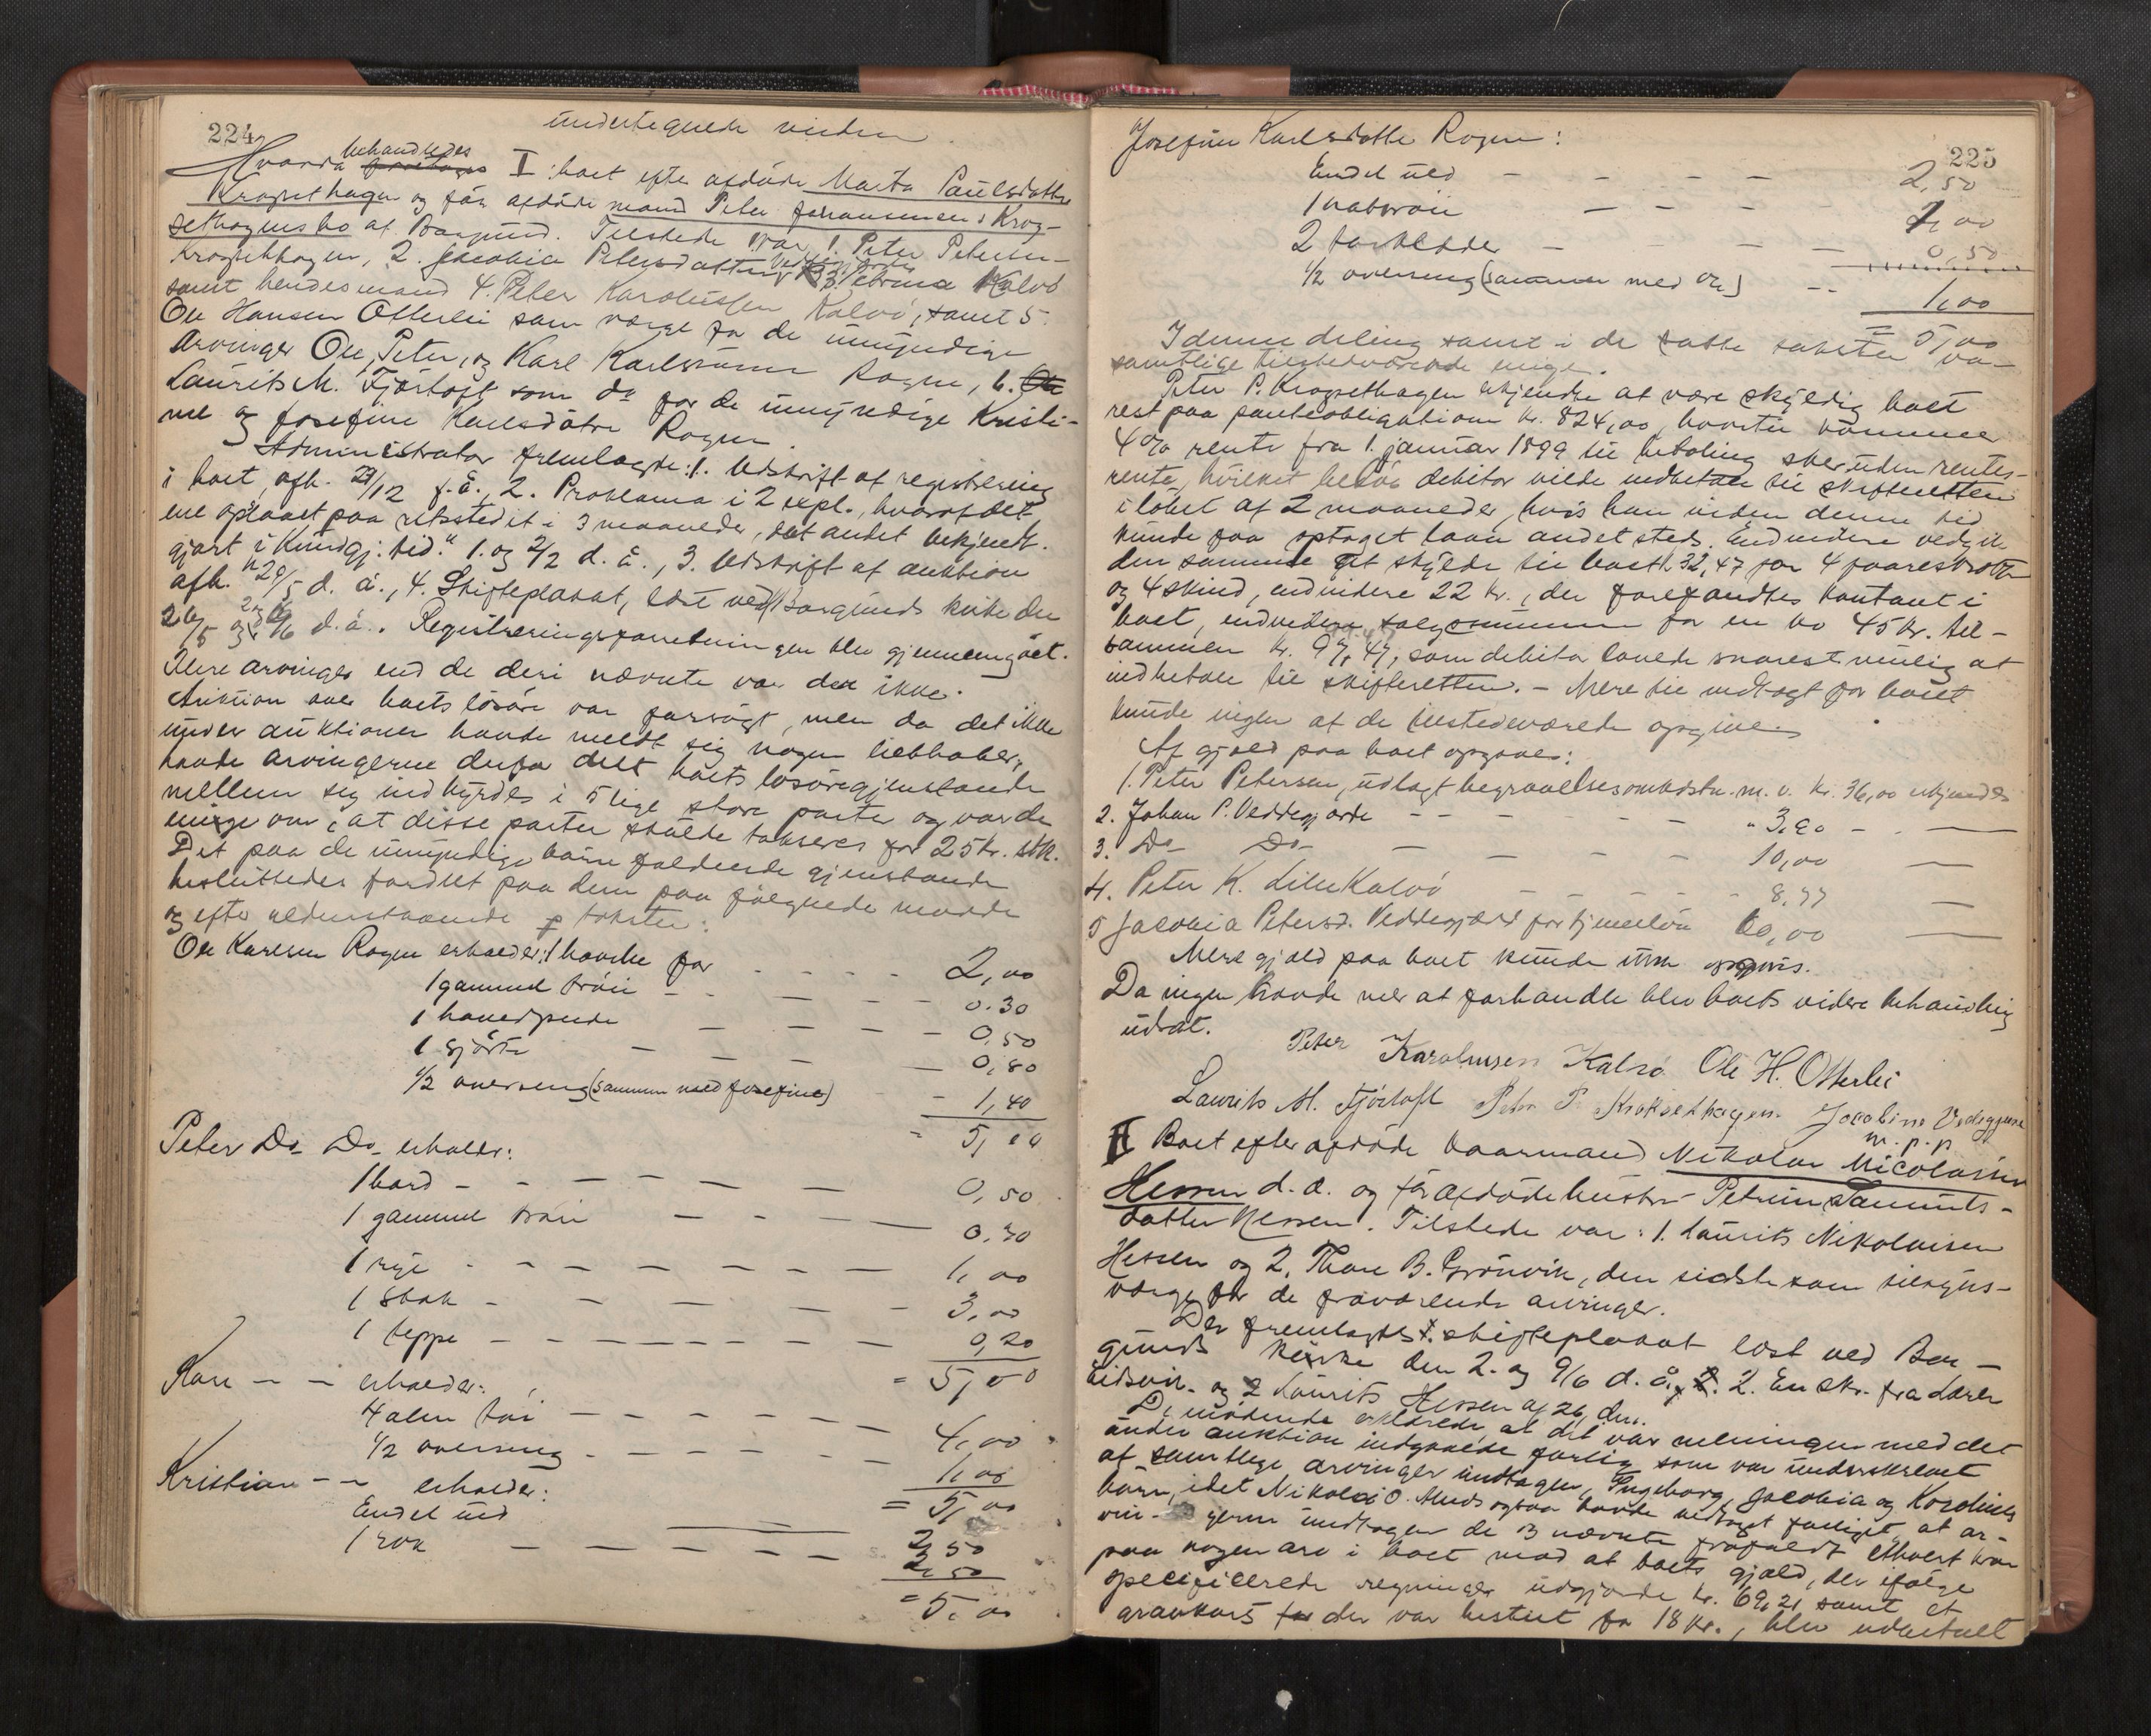 224
undertegnede vidner
Hvorda behandledes foretoges I: boet efter afdöde Marta Paulsdatter
Krogsethagen og för afdöde mand Peter Johannesen Krog-
sethagens bo af Borgund. Tilstede var 1. Peter Petersen
Krogsethagen, 2. Jacobia Petersdatter Veddegjerde 3. Petrina Kalvö
samt hendes mand 4. Peter Karolussen Kalvö, samt 5.
Ole Hansen Otterlei som værge for de umyndige
arvinger Ole, Peter, og Karl Karlssönner Rogne, 6.
Laurits M. Fjörtoft som do for de umyndige Kristi-
ne og Josefine Karlsdötre Rogne.
Administrator fremlagde: 1. Udskrift af registrering
i boet, afh. 21/12 f. å., 2. Proklama i 2 expl., hvoraf det
ene oplaaet paa retsstedet i 3 maaneder, det andet bekjendt-
gjort i "Kundgj. tid." 1. og 2/2 d. å., 3. Udskrift af auktion
afh. 29/5 d. å., 4. Skifteplakat, læst ved Borgunds kirke den
26/5 og 2/6 d. å.. Registreringsforretningen blev gjennemgået.
Flere arvinger end de deri nævnte var der ikke.
Auktion over boets lösöre var forsögt, men da det ikke
under auktionen havde meldt sig nogen liebhaber,
havde arvingerne derfor delt boets lösöregjenstande
mellem sig indbyrdes i 5 lige store parter og var de
enige om, at disse parter skulde takseres for 25 kr. stk.
Det paa de umyndige börn faldende gjenstande
besluttedes fordelt paa dem paa fölgende maade
og efter nedenstaaende takster:
Ole Karlsen Rogne erholder: 1 hævle for - - - - 2,00
1 gammel tröie - - - - - 0.30
1 hovedpude - - - - 0,50
1 Skjörte - - - - 0,80
1/2 overseng (sammen med Josefine) - 1,40
= 5,00
Peter Do Do erholder:
1 bord - - - - - - 0,50
1 gammel tröie - - - - 0,30
1 rye - - - - - - 1,00
1 Stak - - - - - 3,00
1 teppe - - - - - - 0,20
= 5,00
Karl - - erholder:
4 alen töi - - - - - 4,00
1/2 overseng - - - - - 1,00
= 5,00
Kristian - - erholder:
Endel uld 2,50
1 rok - - - - - 2,50
= 5,00
225
Josefine Karlsdatter Rogne:
Endel uld - - - - 2,50
1 natteröie - - - 1,00
2 forklæder - - - 0,50
1/2 overseng (sammen med Ole) -- 1,00
= 5,00
I denne deling samt i de satte takster var
samtlige tilstedeværende enige.
Peter P. Krogsethagen erkjendte at være skyldig boet
rest paa panteobligation kr. 824,00, hvortil kommer
4% rente fra 1. januar 1899 til betaling sker, uden rentes-
rente, hvilket belöb debitor vilde indbetale til skifteretten
i löbet af 2 maaneder, hvis han inden denne tid
kunde faa optaget laan andetsteds. Endvidere vedgik
den samme at skylde til boet kr. 32,47 for 4 faareskrotter
og 4 skind, endvidere 22 kr., der forefandtes kontant i
boet, endvidere salgssummen for en ko 45 kr. til-
sammen kr. 97,47, som debitor lovede snarest mulig at
indbetale til skifteretten. - Mere til indtægt for boet
kunde ingen af de tilstedeværende opgive.
Af gjæld paa boet opgaves:
1. Peter Petersen, udlagt begravelsesomkostn. m. v. kr. 36,00 erkjendes
2. Johan P. Veddegjerde - - - - - " 3,20 - . -
3. Do Do - - - - 10,00 -
4. Peter K. Lille Kalvö - - - - - 8,77 -
5 Jacobia Petersd. Veddegjærde for tjenerlön 60,00 -
Mere gjæld paa boet kunde ikke opgives.
Da ingen havde mer at forhandle blev boets videre behandling
udsat.
Peter Karolussen Kalvö Ole H. Otterlei
Laurits M. Fjörtoft Peter P. Kroksethagen. Jacobine Vedegjerde
m. p. p
II Boet efter afdöde kaarmand Nikolai Nicolaisen
Hessen d. æ. og förafdöde hustru Petrine Samuels-
datter Hessen. Tilstede var: 1. Laurits Nikolaisen
Hessen og 2. Thore B. Grönvik, den sidste som tilsyns-
værge for de fraværende arvinger.
Der fremlagdes 1. skifteplakat læst ved Bor-
gunds kirke den 2. og 9/6 d. å., 2. En skr. fra Lærer
Eidsvik og Laurits Hessen af 26. ds.
De mödende erklærede, at det var meningen med det
under auktion indgaaede forlig som var underskrevet
af samtlige arvinger undtagen, Ingeborg, Jacobia og Karoline
börn, idet Nikolai O. Aluds ogsaa havde vedtaget forliget, at ar-
vin- gerne undtagen de 3 nævnte frafaldt ethvert krav
paa nogen arv i boet mod at boets gjæld, der ifölge
specificerede regninger udgjorde kr. 69,21 samt et
gravkors der var bestilt for 18 kr., blev udbetalt